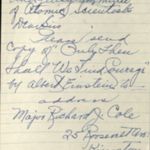 of Atomic Scientists
Please send
copy of "Only Then
Shall We Find Courage"
by Albert Einstein to
address
Major Richard J. Cole
25 Rosenstten